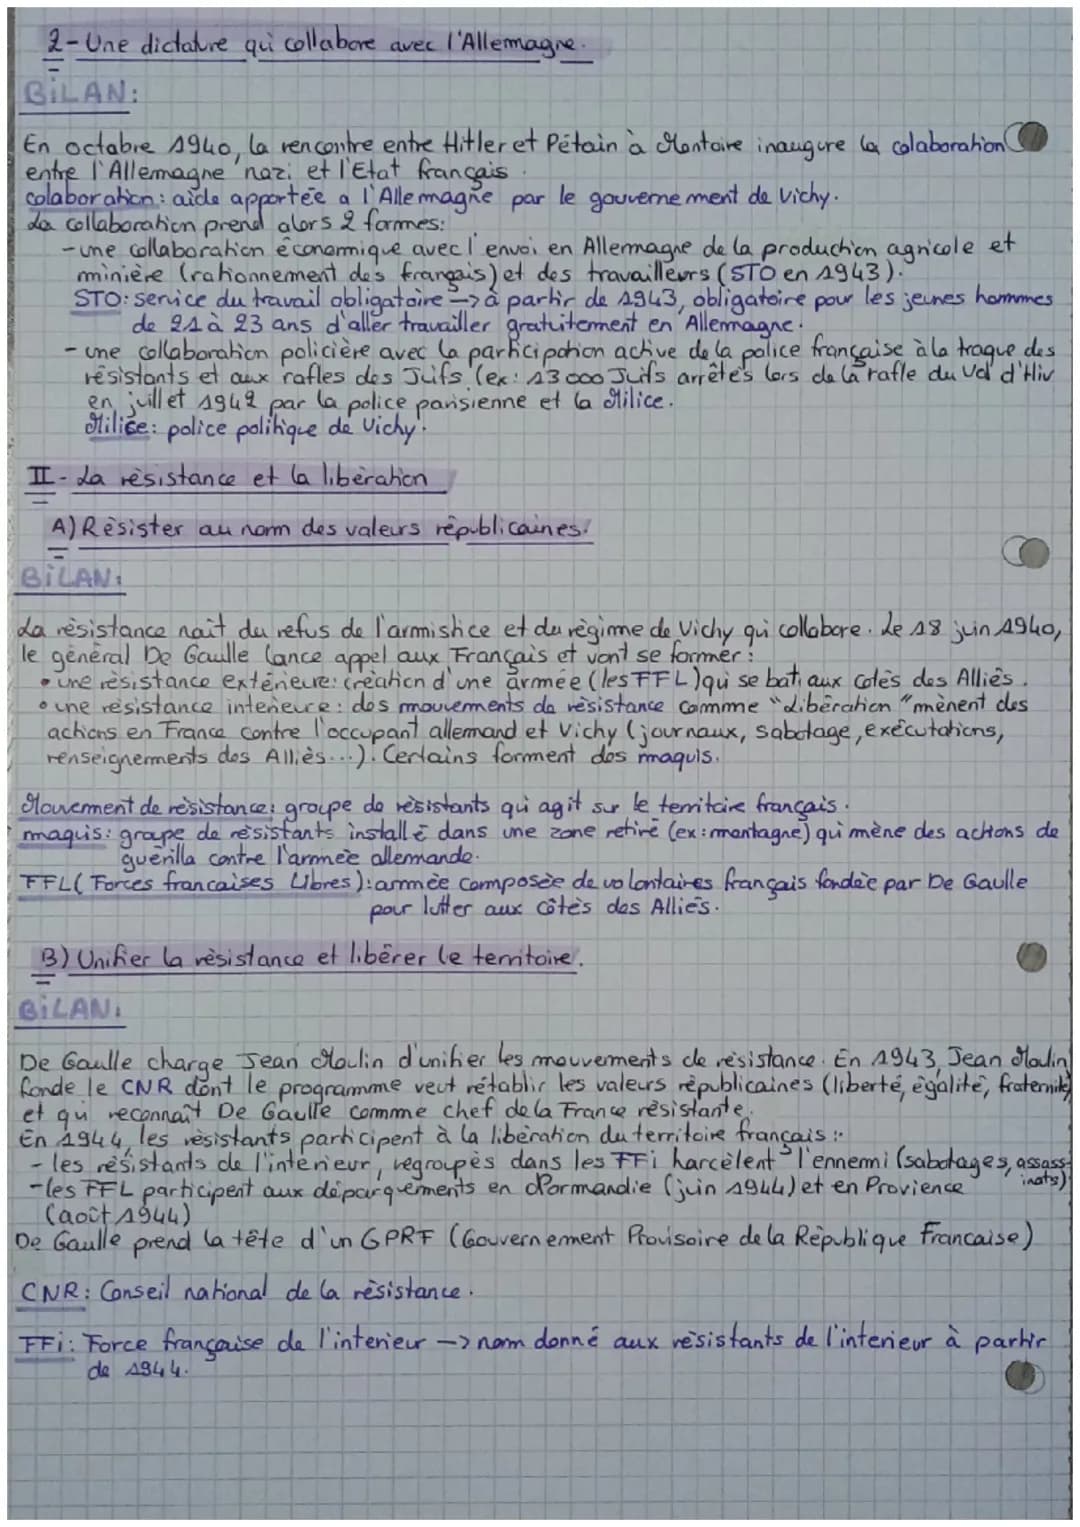 2- Une dictature qui collabore avec l'Allemagne.
BiLAN:
En octobre 1940, la rencontre entre Hitler et Pétain à Montoire inaugure la colaboration
entre l'Allemagne nazi et l'Etat français.
colaboration: aide apportée a l'Allemagne par le gouvernement de Vichy.
La collaboration prend alors 2 formes:
- une collaboration économique avec l'envoi en Allemagne de la production agricole et
minière (rationnement des français) et des travailleurs (STO en 1943).
STO: service du travail obligatoire -> à partir de 1943, obligatoire pour les jeunes hommes
de 21 à 23 ans d'aller travailler gratuitement en Allemagne.
- une collaboration policière avec la participation active de la police française à la traque des
résistants et aux rafles des Juifs (ex: 13 000 Juifs arrêtés lors de la rafle du Vel d'Hiv
en juillet 1942 par la police parisienne et la Milice.
Milice: police politique de Vichy.
II- La résistance et la libération
A) Résister au nom des valeurs républicaines.
BiLAN:
La résistance nait du refus de l'armistice et du règime de Vichy qui collabore. Le 18 juin 1940,
le général De Gaulle lance appel aux Français et vont se former:
• une résistance extérieure: création d'une armée (les FFL) qui se bat aux cotés des Alliés.
• une résistance interieure: des mouvements de résistance comme "Libération" mènent des
actions en France contre l'occupant allemand et Vichy (journaux, sabotage, exécutations,
renseignements des Alliés...). Certains forment des maquis.
Mouvement de résistance: groupe de résistants qui agit sur le territoire français.
maquis: groupe de résistants installé dans une zone retiré (ex: montagne) qui mène des actions de
guérilla contre l'armée allemande.
FFL (Forces francaises Libres): armée composée de volontaires français fondée par De Gaulle
pour lutter aux côtés des Alliés.
B) Unifier la résistance et libérer le territoire.
BiLAN:
De Gaulle charge Jean Moulin d'unifier les mouvements de résistance. En 1943, Jean Moulin
fonde le CNR dont le programme veut rétablir les valeurs républicaines (liberté, égalité, fraternité)
et qui reconnaît De Gaulle comme chef de la France résistante.
En 1944, les résistants participent à la libération du territoire français:
- les résistants de l'interieur, regroupés dans les FFi harcèlent l'ennemi (sabotages, assass-
inats)
- les FFL participent aux déparquements en Normandie (juin 1944) et en Provience
(août 1944)
De Gaulle prend la tête d'un GPRF (Gouvernement Provisoire de la République Francaise)
CNR: Conseil national de la résistance.
FFi: Force française de l'interieur -> nom donné aux résistants de l'interieur à partir
de 1944.